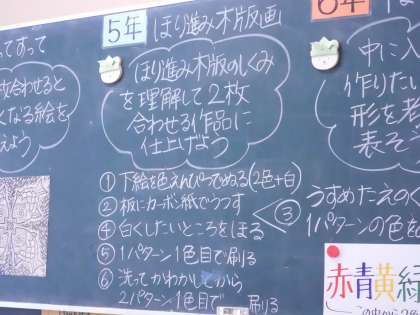 5年 ほり進み木版画
6年
ほり進み木版のしくみ
を理解して2枚
合わせる作品に
仕上げよう
① 下絵を色えんぴつでぬる(2色+白)
② 板にカーボン紙でうつす
④ 白くしたいところをほる
⑤ 1パターン1色目で刷る
⑥ 洗ってかわかしてから
2パターン1色目で 刷る
ってすって
枚合わせると
くなる絵を
えよう
中に入
作りたい
形を考
表そ
③
うすめたえのぐ
1パターンの色を
赤青黄緑